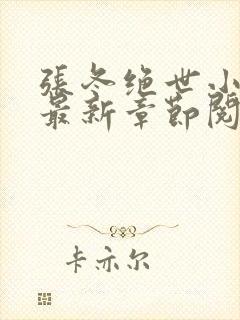 張冬绝世小
最新章節閱
卡亦尔